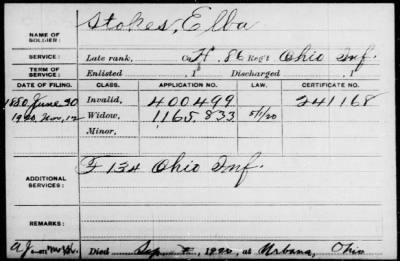 Stokes, Elba
NAME OF SOLDIER:
SERVICE: Late rank, Co. H. 86 Reg't Ohio Inf.
TERM OF SERVICE: Enlisted , 1 Discharged , 1
DATE OF FILING. CLASS. APPLICATION NO. LAW. CERTIFICATE NO.
1880, June 30 Invalid, 400499 241168
1920, Nov, 12 Widow, 1165.833 5/1/20
Minor,
F 134 Ohio Inf.
ADDITIONAL SERVICES:
REMARKS:
Died Sep , 1920 at Urbana, Ohio